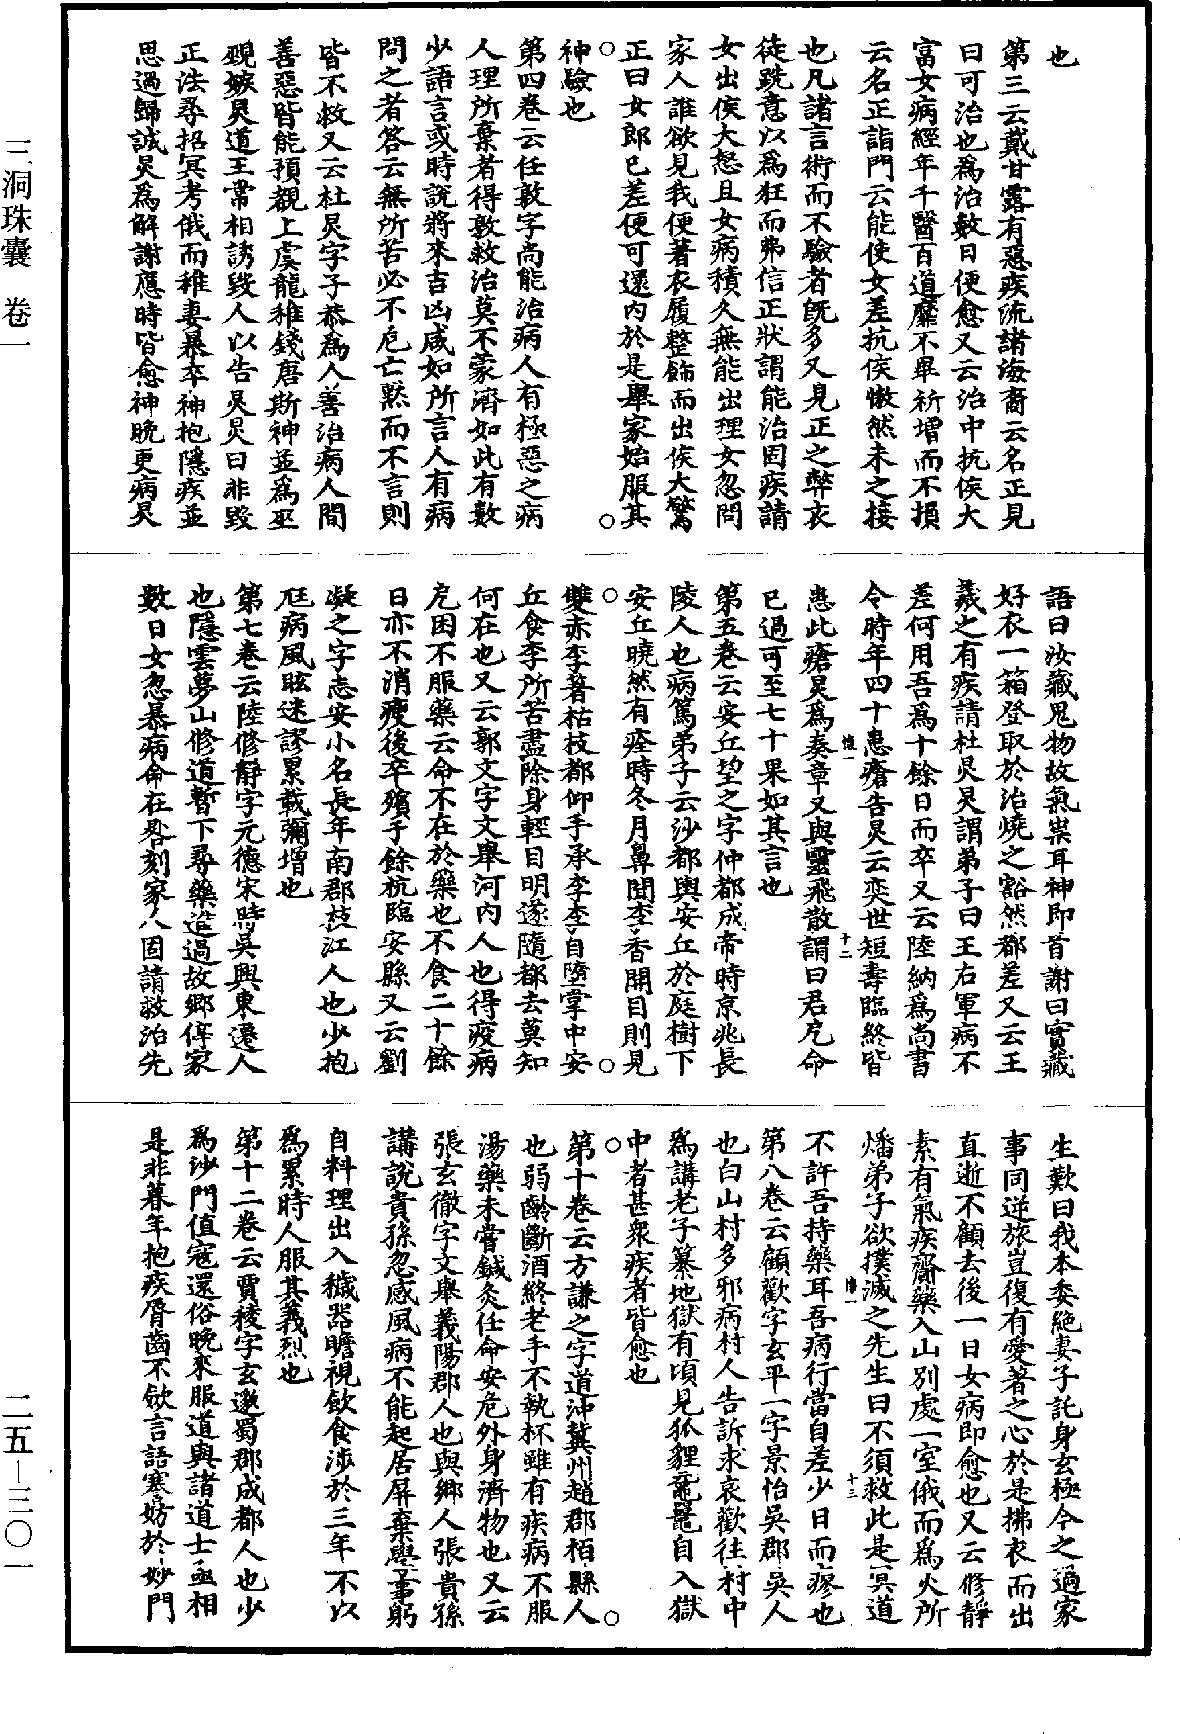 三洞珠囊　卷一
也
第三云戴甘露有惡疾流諸海裔云名正見
曰可治也為治數日便愈又云治中抗侯大
富女病經年千醫百道靡不畢祈增而不損
云名正詣門云能使女差抗侯憿然未之接
也凡諸言術而不驗者既多又見正之弊衣
徒跣意以為狂而弗信正狀謂能治固疾請
女出侯大怒且女病積久無能出理女忽問
家人誰欲見我便著衣履整飾而出侯大驚
正曰女郎已差便可還內於是舉家始服其
神驗也
第四卷云任敦字尚能治病人有極惡之病
人理所棄者得敦救治莫不蒙濟如此有數
少語言或時說將來吉凶咸如所言人有病
問之者答云無所苦必不危亡默而不言則
皆不救又云杜炅字子恭為人善治病人間
善惡皆能預覩上虞龍稚錢唐斯神並為巫
覡嫉炅道王常相誘毀人以告炅炅曰非毀
正法尋招冥考俄而稚妻暴卒神抱隱疾並
思過歸誠炅為解謝應時皆愈神晚更病炅
語曰汝藏鬼物故氣祟耳神即首謝曰實藏
好衣一箱登取於治燒之豁然都差又云王
羲之有疾請杜炅炅謂弟子曰王右軍病不
差何用吾為十餘日而卒又云陸納為尚書
令時年四十患瘡告炅云奕世短壽臨終皆
患此瘡炅為奏章又與靈飛散謂曰君危命
已過可至七十果如其言也
第五卷云安丘望之字仲都成帝時京兆長
陵人也病篤弟子云沙都與安丘於庭樹下
安丘曉然有痊時冬月鼻聞李香開目則見
雙赤李著枯枝都仰手承李李自墮掌中安
丘食李所苦盡除身輕目明遂隨都去莫知
何在也又云郭文字文舉河內人也得疫病
危困不服藥云命不在於藥也不食二十餘
日亦不消瘦後卒殯于餘杭臨安縣又云劉
凝之字志安小名長年南郡枝江人也少抱
尫病風眩迷謬累載彌增也
第七卷云陸修靜字元德宋時吳興東遷人
也隱雲夢山修道暫下尋藥造過故鄉停家
數日女忽暴病命在晷刻家人固請救治先
生歎曰我本委絕妻子託身玄極今之過家
事同逆旅豈復有愛著之心於是拂衣而出
直逝不顧去後一日女病即愈也又云修靜
素有氣疾齎藥入山別處一室俄而為火所
燔弟子欲撲滅之先生曰不須救此是冥道
不許吾持藥耳吾病行當自差少日而瘳也
第八卷云顧歡字玄平一字景怡吳郡吳人
也白山村多邪病村人告訴求哀歡往村中
為講老子纂地獄有頃見狐貍黿鼉自入獄
中者甚眾疾者皆愈也
第十卷云方謙之字道沖冀州趙郡栢縣人
也弱齡斷酒終老手不執杯雖有疾病不服
湯藥未嘗鍼灸任命安危外身濟物也又云
張玄徹字文舉義陽郡人也與鄉人張貴孫
講說貴孫忽感風病不能起居屏棄學事躬
自料理出入穢器瞻視飲食涉於三年不以
為累時人服其義烈也
第十二卷云賈稜字玄邈蜀郡成都人也少
為沙門值寇還俗晚來服道與諸道士亟相
是非暮年抱疾脣齒不歛言語蹇妨於妙門
懷一
十二
懷一
十三
二五－三〇一